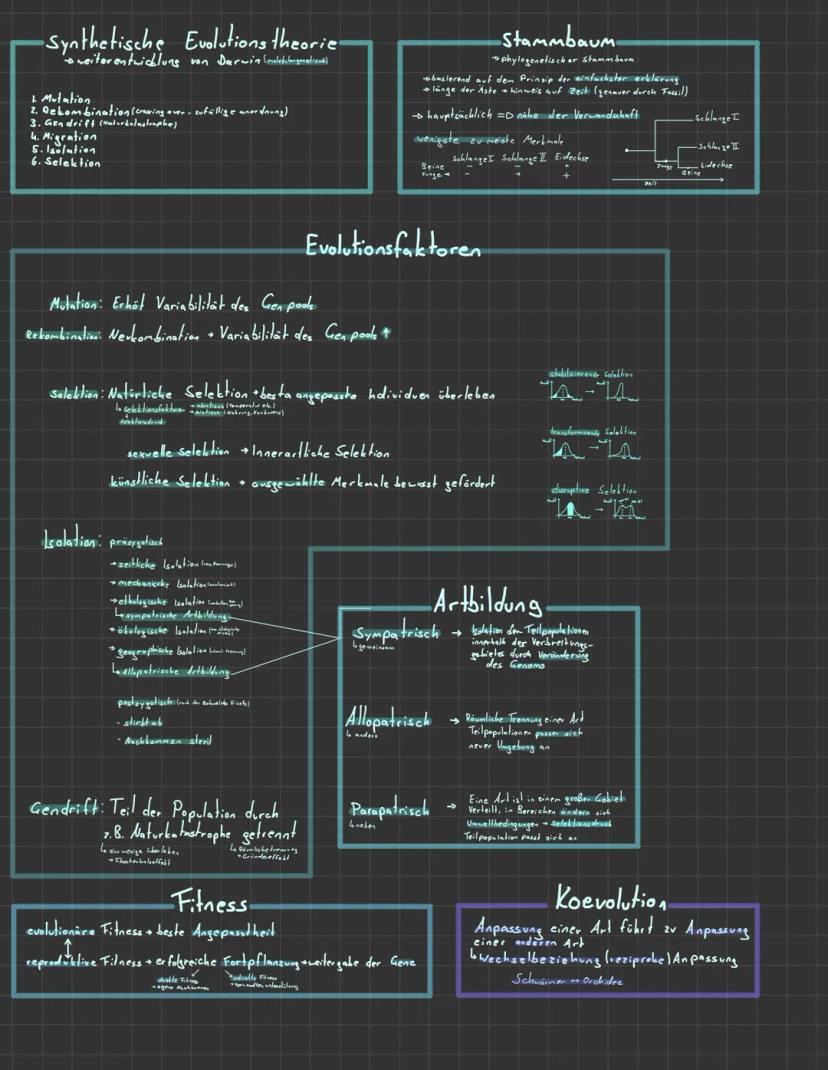 Synthetische Evolutionstheorie
→ weiterentwicklung von Darwin (molekulargenetisch)
1. Mutation
2. Rekombination (crossing over - zufällige anordnung)
3. Gendrift (Naturkatastrophe)
4. Migration
5. Isolation
6. Selektion
Stammbaum
→ phylogenetischer Stammbaum
→ basierend auf dem Prinzip der einfachsten erklärung
→ länge der Äste → hinweis auf Zeit (genauer durch Fossil)
→ hauptsächlich => nähe der Verwandschaft
wenigste zu meiste Merkmale
Schlange I Schlange II Eidechse
Beine - - +
Zunge - + +
Schlange I
Schlange II
Zunge
Eidechse
Beine
Zeit
Evolutionsfaktoren
Mutation: Erhöt Variabilität des Genpools
Rekombination: Neukombination → Variabilität des Genpools ↑
Selektion: Natürliche Selektion → besta angepasste Individuen überleben
↳ Selektionsfaktoren → abiotisch (Temperatur etc.)
→ biotisch (Nahrung, Konkurrenz)
Selektionsdruck
sexuelle Selektion → Innerartliche Selektion
künstliche Selektion → ausgewählte Merkmale bewusst gefördert
stabilisierende Selektion
transformierende Selektion
disruptive Selektion
Isolation: präzygotisch
→ zeitliche Isolation
→ mechanische Isolation
→ ethologische Isolation
↳ sympatrische Artbildung
→ ökologische Isolation
→ geographische Isolation
↳ Allopatrische Artbildung
postzygotisch
- stirbt ab
- Nachkommen steril
Gendrift: Teil der Population durch
z.B. Naturkatastrophe getrennt
↳ Nur wenige überleben
→ Flaschenhalseffekt
↳ Räumliche trennung
→ Gründereffekt
Artbildung
Sympatrisch → Isolation der Teilpopulationen
↳ gemeinsam
innerhalb des Verbreitungs-
gebietes durch Veränderung
des Genoms
Allopatrisch → Räumliche Trennung einer Art
↳ anders
Teilpopulationen passen sich
neuer Umgebung an
Parapatrisch → Eine Art ist in einem großen Gebiet
↳ neben
Verteilt, in Bereichen ändern sich
Umweltbedingungen → Selektionsdruck
Teilpopulation passt sich an
Fitness
evolutionäre Fitness → beste Angepasstheit
reproduktive Fitness → erfolgreiche Fortpflanzung → weitergabe der Gene
direkte Fitness
→ eigene Nachkommen
indirekte Fitness
→ Verwandtenunterstützung
Koevolution
Anpassung einer Art führt zu Anpassung
einer anderen Art
↳ Wechselbeziehung (reziproke) Anpassung
Schwärmer ↔ Orchidee